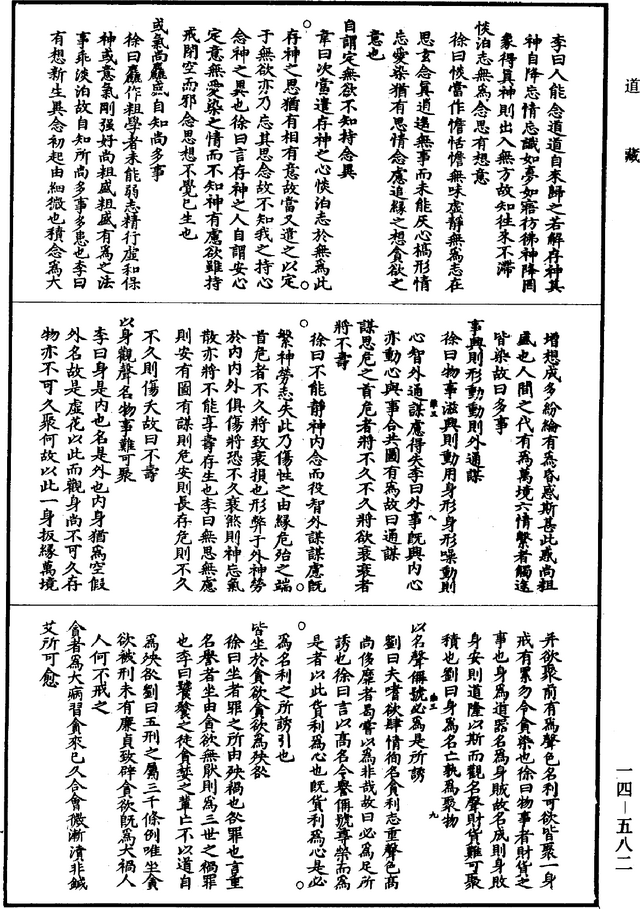 道藏
李曰人能念道道自來歸之若解存神其
神自降忘情忘識如夢如寤彷彿神降罔
象得真神則出入無方故知往來不滯
惔泊志無為念思有想意
徐曰惔當作憺恬憺無味虛靜無為志在
思玄念真逍遙無事而未能灰心槁形情
忘愛染猶有思情念慮追緣之想貪欲之
意也
自謂定無欲不知持念異
韋曰次當遣存神之心惔泊志於無為此
存神之思猶有相有意故當又遣之以定
于無欲亦乃忘其思念故不知我之持心
念神之異也徐曰言存神之人自謂安心
定意無愛染之情而不知神有慮欲雖持
戒閉空而邪念思想不覺已生也
或氣尚麤盛自知尚多事
徐曰麤作粗學者未能弱志精行虛和保
神或意氣剛强好尚粗盛粗盛有為之法
事乖淡泊故自知所尚多事多患也李曰
有想新生異念初起由細微也積念為大
增想成多紛綸有為昏惑斯甚此惑尚粗
盛也人間之代有為萬境六情繫者觸塗
皆染故曰多事
事興則形動動則外通謀
徐曰物事滋興則動用身形身形噪動則
心智外通謀慮得失李曰外事旣興內心
亦動心與事合共圖有為故曰通謀
謀思危之首危者將不久不久將欲衰衰者
將不壽
徐曰不能靜神內念而役智外謀謀慮旣
繁神勞志失此乃傷性之由緣危殆之端
首危者不久將致衰損也形弊于外神勞
於內內外俱傷將恐不久衰煞則神忘氣
散亦將不能享壽存生也李曰無思無慮
則安有圖有謀則危安則長存危則不久
不久則傷夭故曰不壽
以身觀聲名物事難可聚
李曰身是內也名是外也內身猶為空假
外名故是虛花以此而觀身尚不可久存
物亦不可久聚何故以此一身扳緣萬境
并欲聚前有為聲色名利可欲皆聚一身
戒有累勿令貪染也徐曰物事者財貨之
事也身為道器名為身賊故名成則身敗
身安則道隆以斯而觀名聲財貨難可聚
積也劉曰身為名亡孰為聚物
以名聲稱號必為是所誘
劉曰夫嗜欲肆情徇名貪利志重聲色高
尚侈靡者曷嘗以為非哉故曰必為足所
誘也徐曰言以高名令譽稱號尊榮而為
是者以此貨利為心也旣貨利為心是必
為名利之所誘引也
皆坐於貪欲貪欲為殃欲
徐曰坐者罪之所由殃禍也欲罪也言重
名譽者坐由貪欲無猒則為三世之禍罪
也李曰饕餮之徒貪婪之輩亡不以道自
為殃欲劉曰五刑之屬三千條例唯坐貪
欲被刑未有廉貞致辟貪欲旣為大禍人
人何不戒之
貪者為大病習貪來已久合會微漸漬非鍼
艾所可愈
一四—五八二